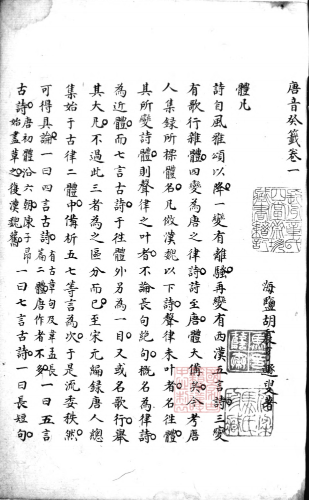 唐音癸籤卷一
海鹽胡震亨遯叟著
體凡
詩自風雅頌以降一變有離騷再變有西漢五言詩三變
有歌行雜體四變為唐之律詩詩至唐體大備矣今考唐
人集錄所標體名凡倣漢魏以下詩聲律未叶者名往體
其所變詩體則聲律之叶者不論長句絕句概名為律詩
為近體而七言古詩于往體外另為一目又或名歌行舉
其大凡不過此三者為之區分而已至宋元編錄唐人總
集始于古律二體中備析五七等言為次于是流委秩然
可得具論一曰四言古詩有古章句及韋孟長篇二體唐作者不多一曰五言
古詩唐初體沿六朝陳子昂始盡革之復漢魏舊一曰七言古詩一曰長短句